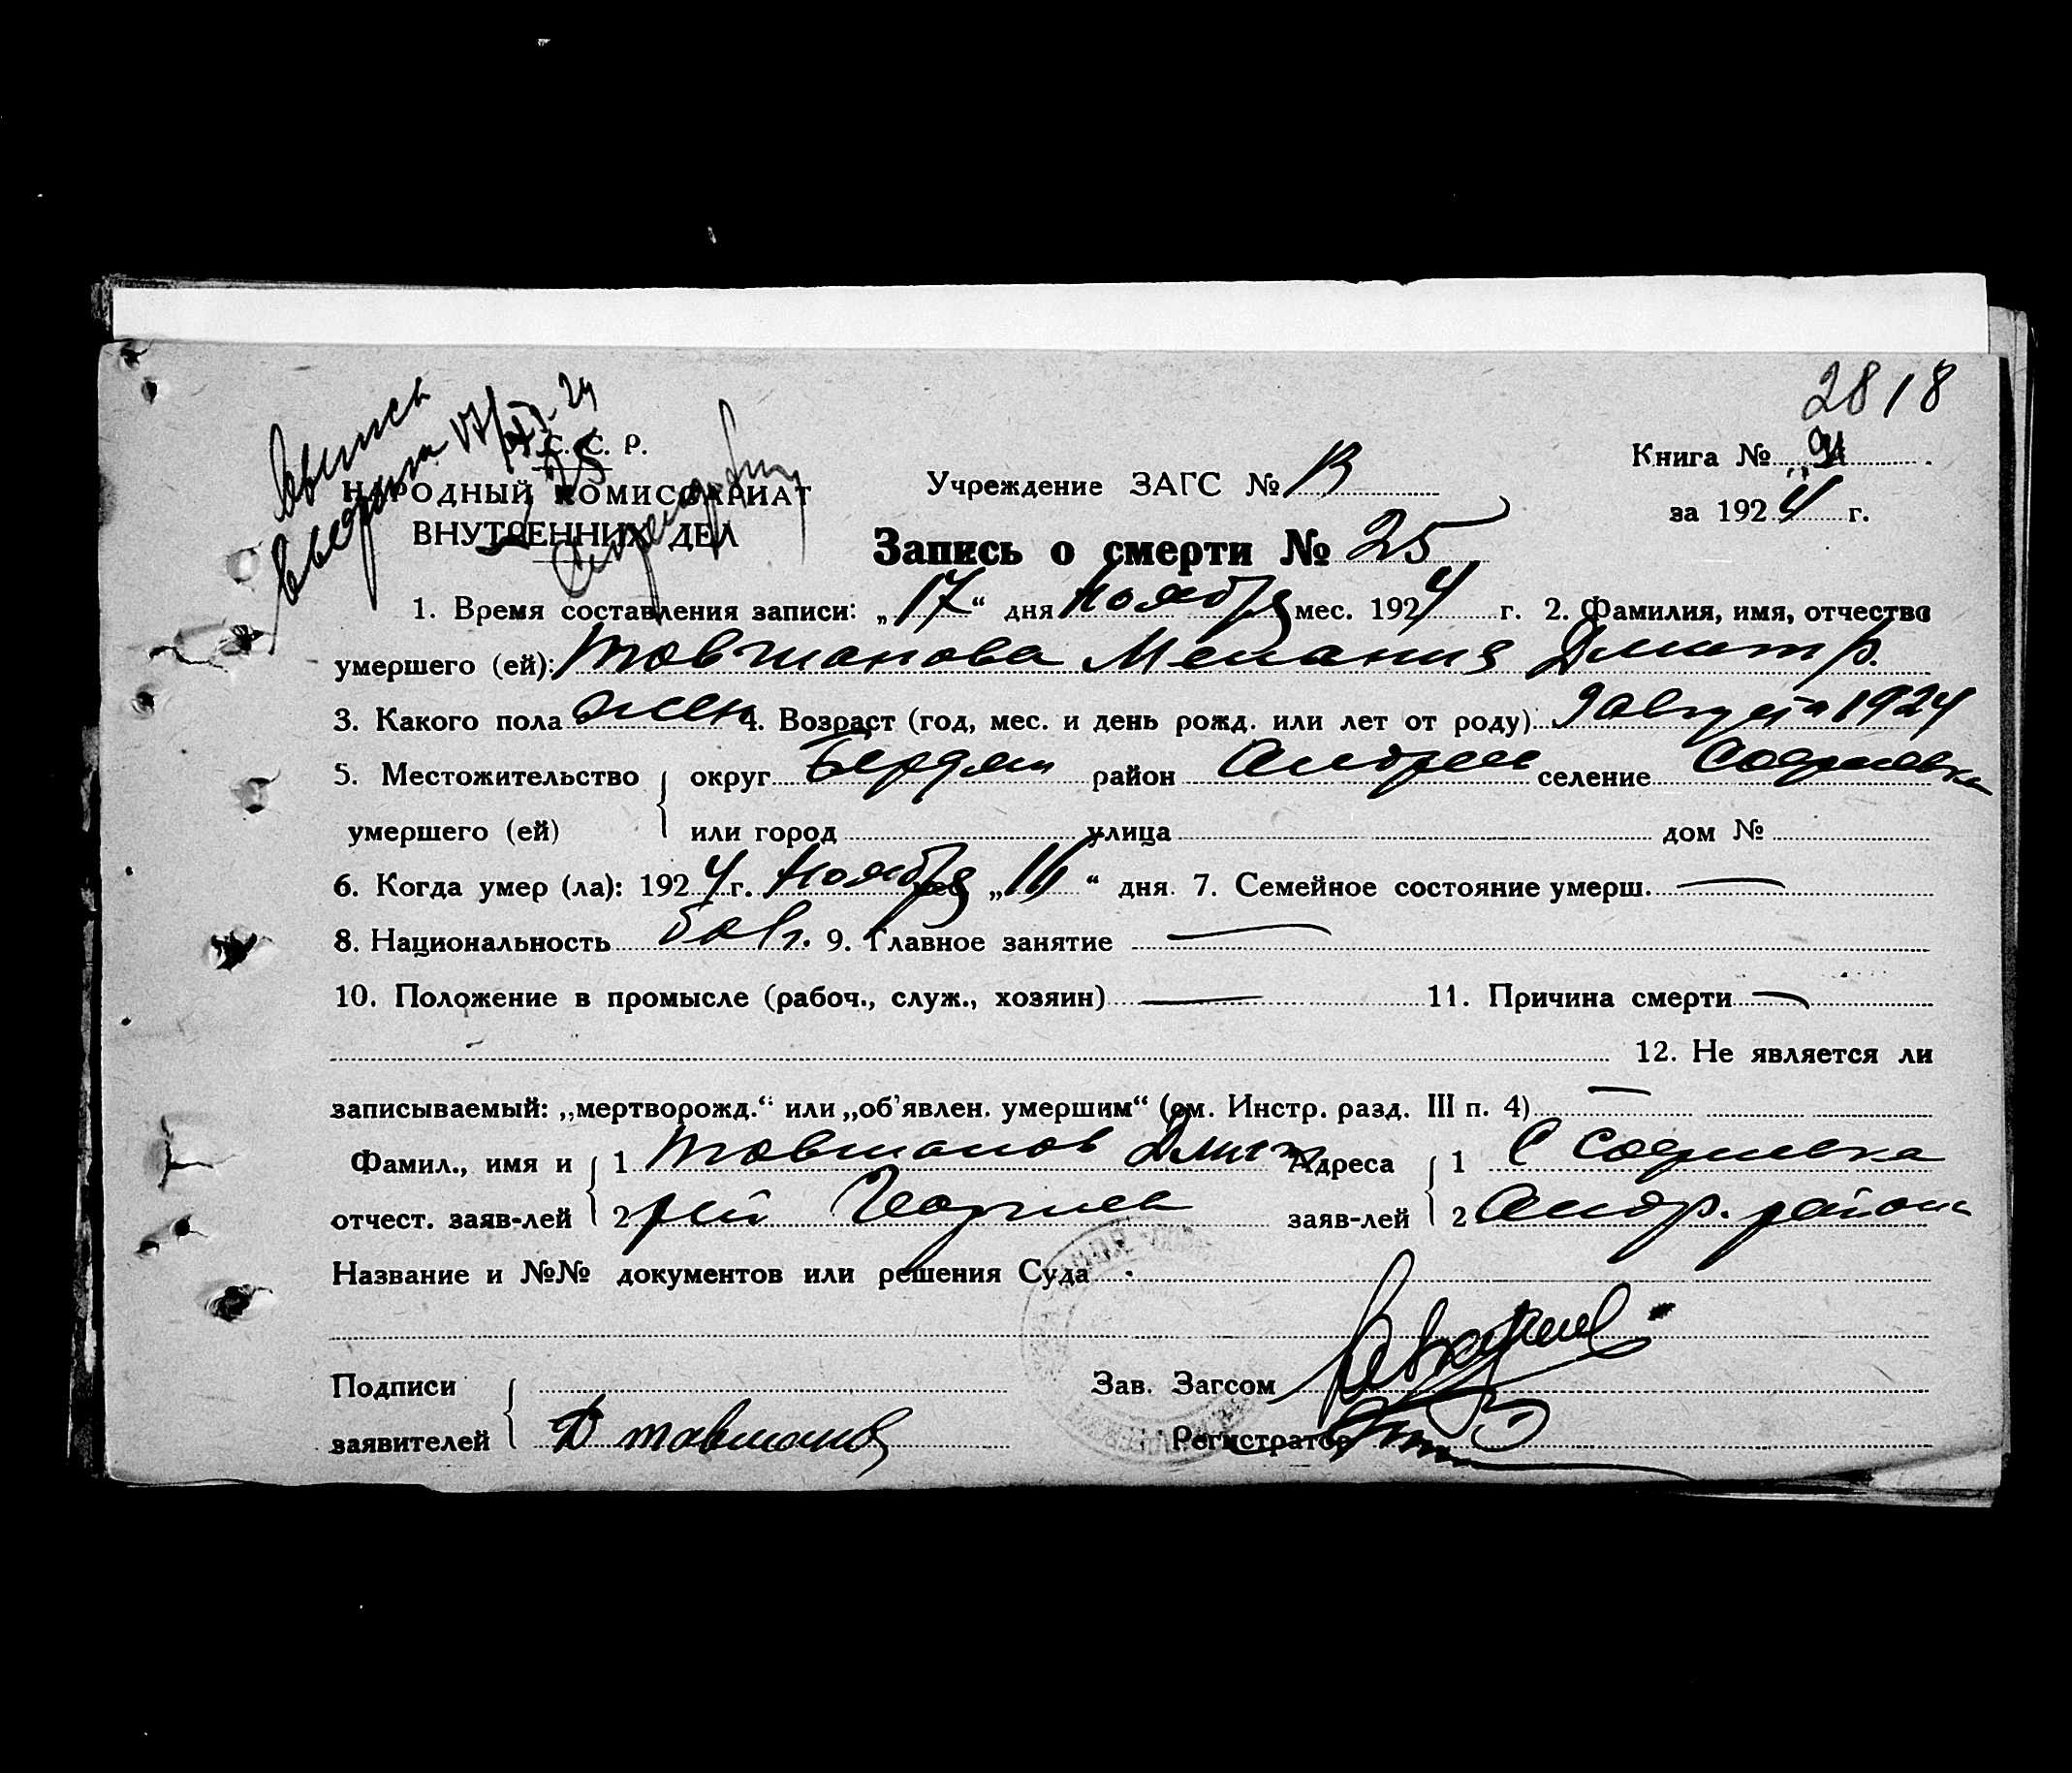 2818
Выпись
выдана 17/XI-24
С. С. Р.
НАРОДНЫЙ КОМИССАРИАТ
ВНУТРЕННИХ ДЕЛ
Учреждение ЗАГС №
Книга №
за 1924 г.
Запись о смерти № 25
1. Время составления записи: „17“ дня Ноября мес. 1924 г. 2. Фамилия, имя, отчество
умершего (ей): Товшанова Мелания Дмитр.
3. Какого пола жен 4. Возраст (год, мес. и день рожд. или лет от роду) 9 августа 1924
5. Местожительство округ Бердян район Андреев селение Софиевка
умершего (ей) или город улица дом №
6. Когда умер (ла): 1924 г. Ноября мес. „16“ дня. 7. Семейное состояние умерш. —
8. Национальность болг. 9. Главное занятие —
10. Положение в промысле (рабоч., служ., хозяин) — 11. Причина смерти —
12. Не является ли
записываемый: „мертворожд.“ или „об'явлен. умершим“ (см. Инстр. разд. III п. 4) —
Фамил., имя и 1 Товшанов Дмит Адреса 1 С Софиевка
отчест. заяв-лей 2 рий Георгиев заяв-лей 2 Андр. района
Название и №№ документов или решения Суда
Подписи Зав. Загсом
заявителей Д товшанов Регистратор